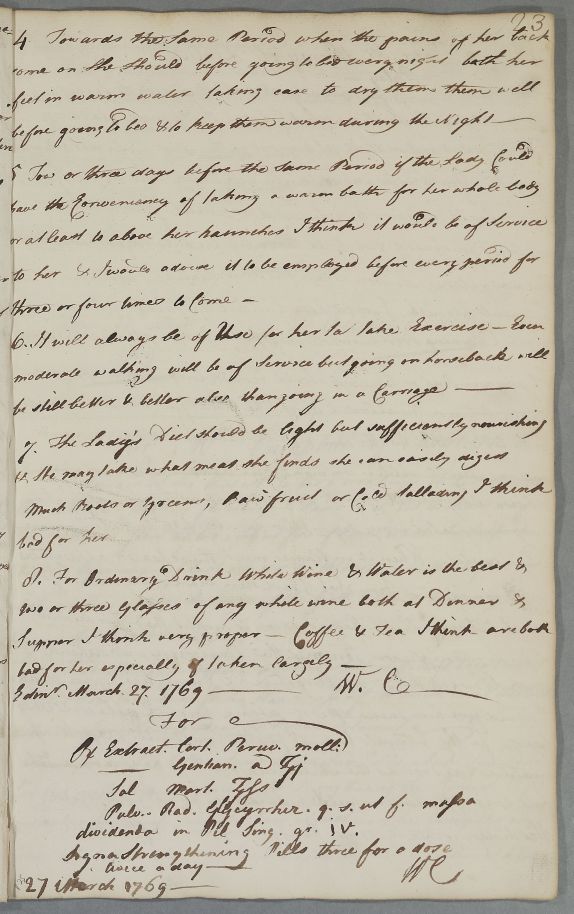 23
4 Towards the same Period when the pains of her back
come on She should before going to bed every night bath her
feet in warm water taking care to dry them them well
before going to bed & to keep them warm during the Night
5 Tow or three days before the same Period if the Lady Could
have the Conveniency of taking a warm bath for her whole body
or at least to above her haunches I think it would be of Service
to her & I would advise it to be employed before every period for
three or four times to Come
6. It will always be of Use for her to take Exercise - Even
moderate walking will be of service but going on horseback will
be still better & better also than going in a Carriage
7. The Lady's Diet should be light but sufficiently nourishing
& She may take what meat she finds she can easily digest
Much Roots or Greens, Raw fruit or Cold Sallading I think
bad for her
8. For Ordinary Drink White Wine & Water is the best &
two or three Glasses of any whole wine both at Dinner &
Supper I think very proper - Coffee & Tea I think are both
bad for her especially if taken largely
Edinr. March. 27. 1769 W. C
For
Rx Extract. Cort. Peruv. moll:
Gentian. a ʒij
Sal Mart. ʒſs
Pulv. Rad. Glycyrrhiz. q. s. ut f. massa
dividenda in Pil Sing. gr. iv.
Signa Strengthening Pills three for a dose
twice a day WC
27 March 1769